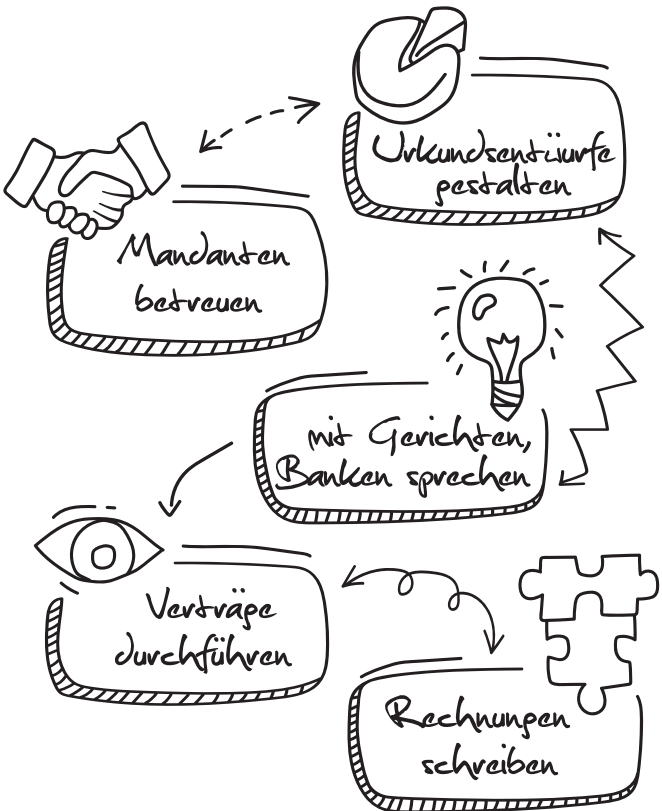 Urkundsentwürfe
gestalten
Mandanten
betreuen
mit Gerichten,
Banken sprechen
Verträge
durchführen
Rechnungen
schreiben